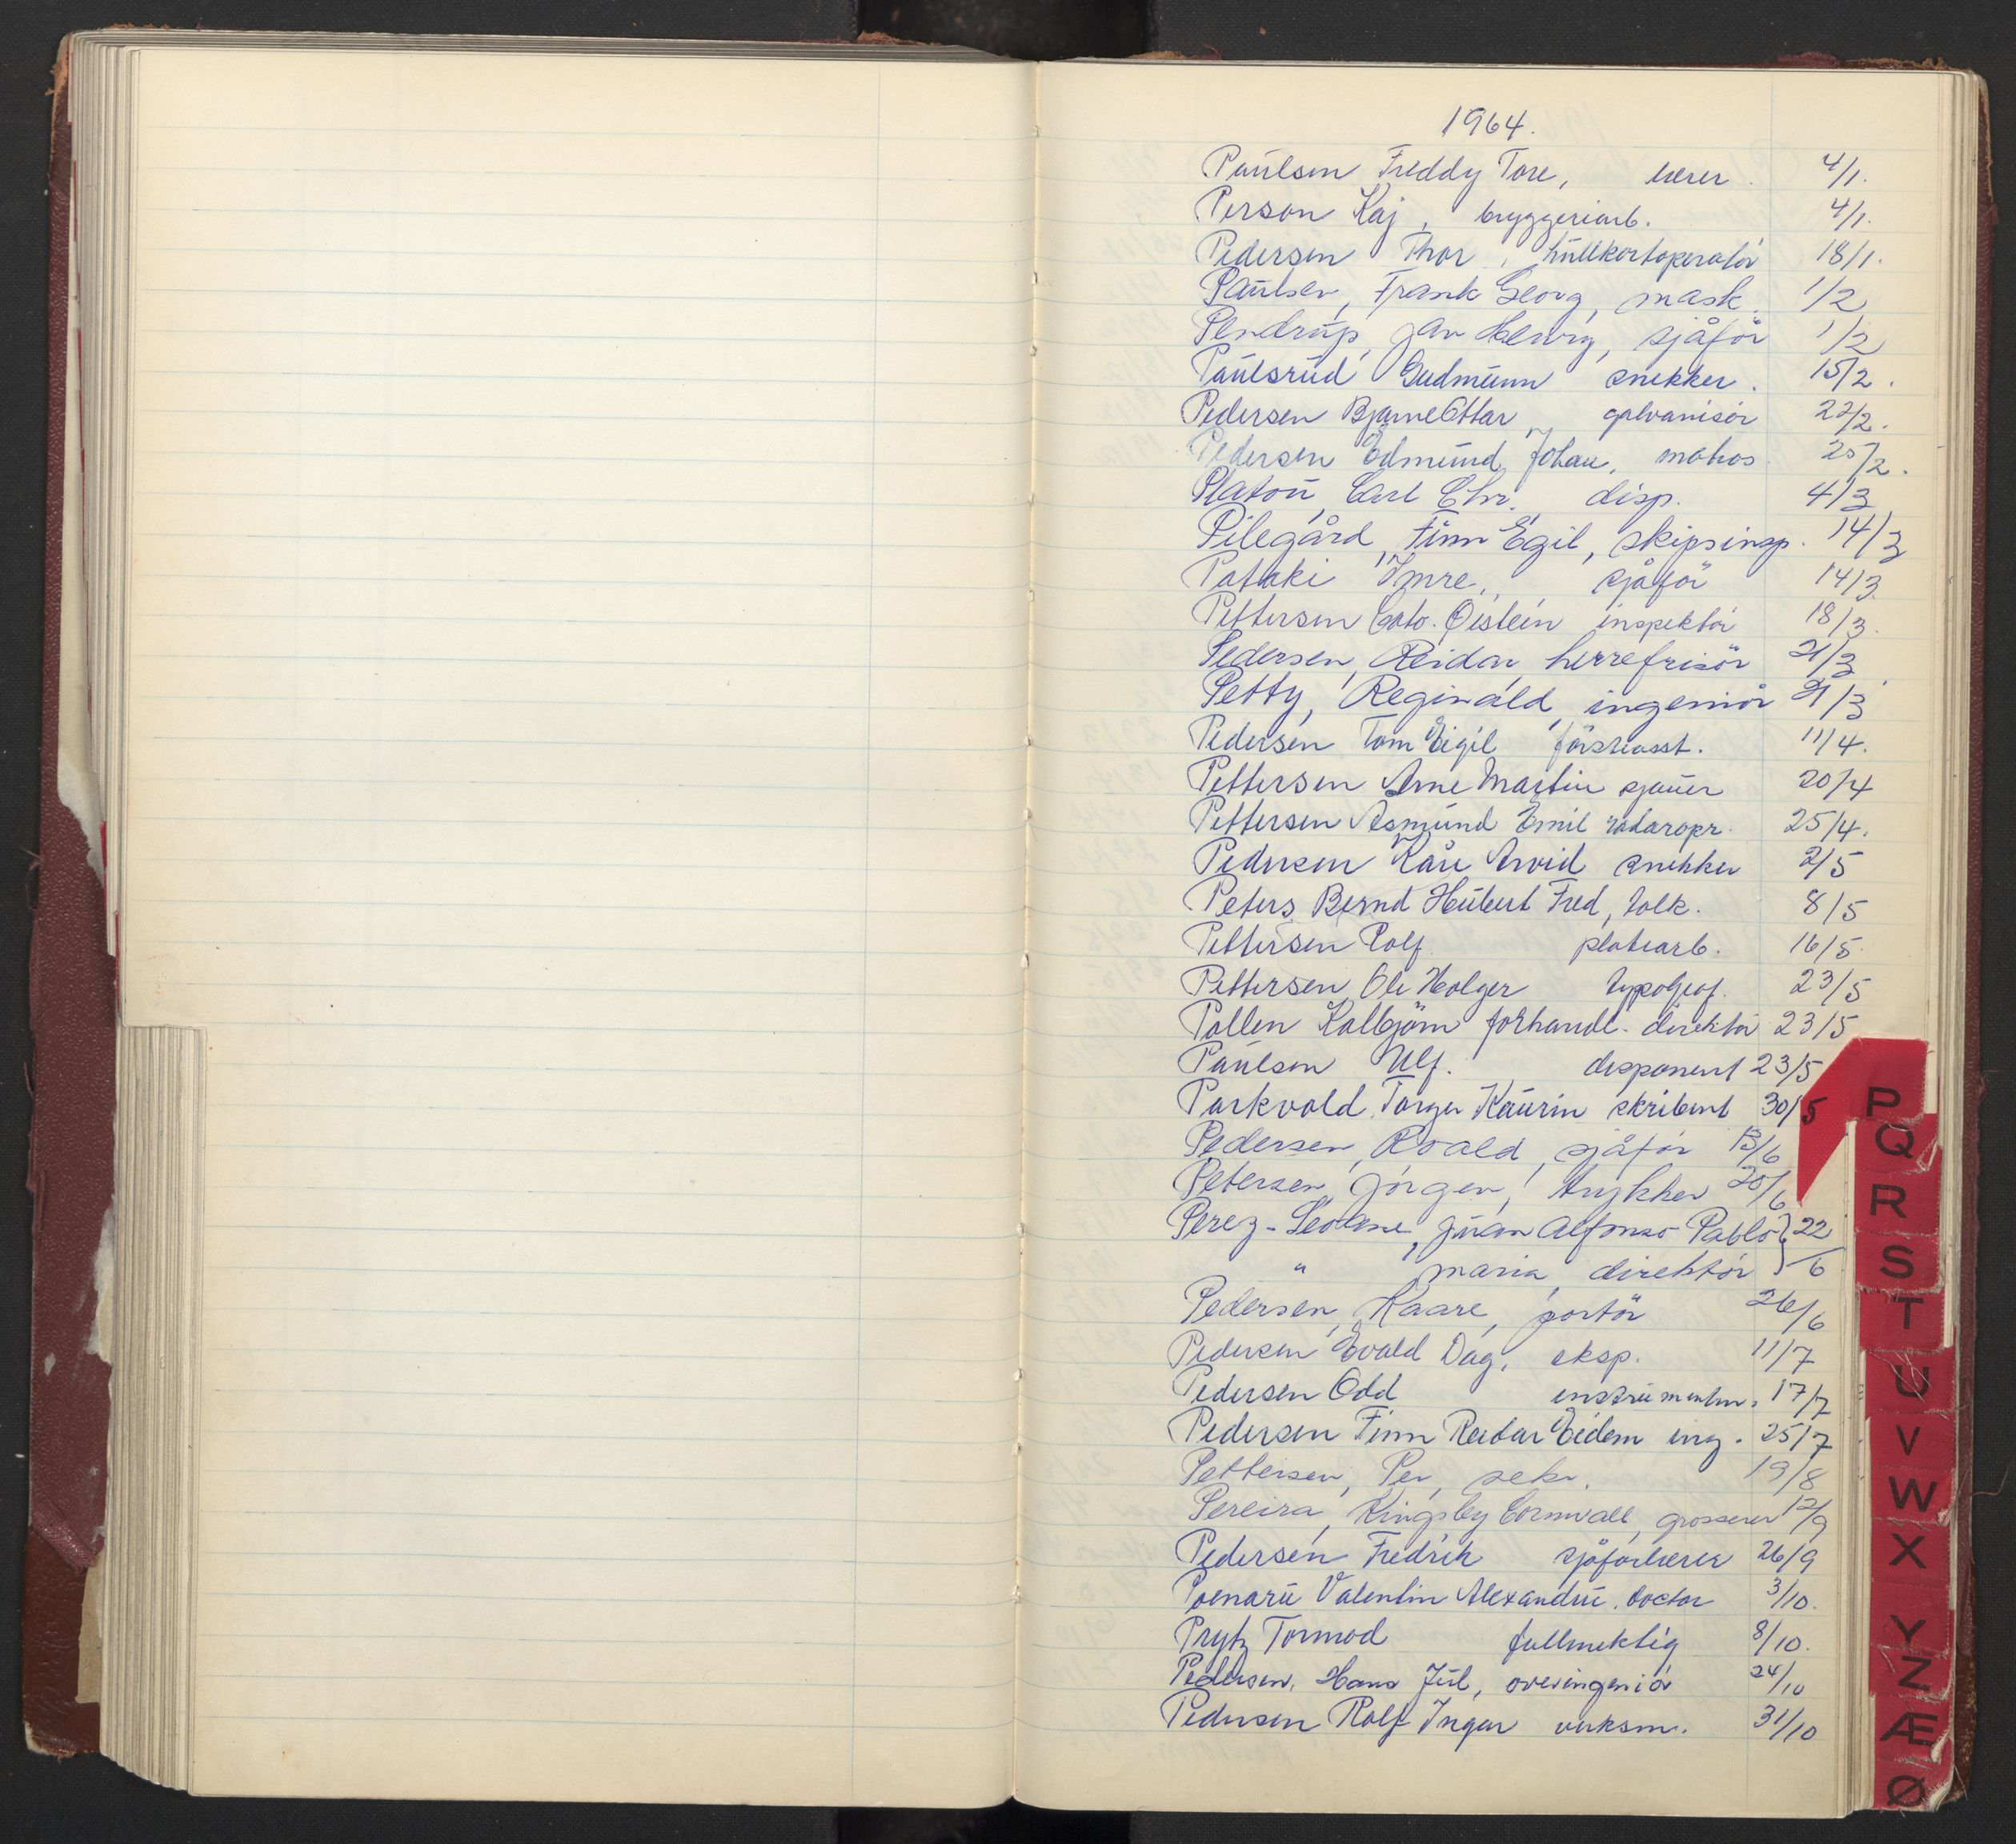 1964.
Paulsen Freddy Tore, lærer. 4/1.
Person Kaj, bryggeriarb. 4/1.
Pedersen Thor, hullkortoperatør 18/1.
Paulsen, Frank Georg, mask. 1/2
Pendrup, Jan Henry, sjåfør 1/2
Paulsrud Gudmunn snekker. 15/2.
Pedersen Bjarne Ottar, galvanisør 22/2.
Pedersen Edmund Johan, matros 25/2.
Platou, Carl Chr., disp. 4/3
Pilegård, Finn Egil, skipsinsp. 14/3
Pataki Imre, sjåfør 14/3
Pettersen Cato. Øistein inspektør 18/3.
Pedersen, Reidar, herrefrisør 21/3
Petty, Reginald, ingeniør 21/3
Pedersen Tom Eigil førsteasst. 11/4.
Pettersen Arne Martin sjauer 20/4
Pettersen Asmund Emil radaropr. 25/4.
Pedersen Kåre Arvid snekker 2/5
Peters Bernd Hubert Fred, tolk. 8/5
Pettersen Rolf platearb. 16/5.
Pettersen Ole Holger typograf. 23/5
Pollen Kolbjørn forhandl. direktør 23/5
Paulsen Ulf. disponent 23/5
Parkvold, Torger Kaurin skribent 30/5
Pedersen, Roald, sjåfør 13/6
Petersen, Jørgen, trykker 20/6
Perez-Seoane, Juan Alfonso Pablo } 22
" maria, direktør } 6
Pedersen, Kaare, portør 26/6
Pedersen Evald Dag, eksp. 11/7
Pedersen Odd instrumentm. 17/7
Pedersen Finn Reidar Eidem ing. 25/7
Pettersen, Per, sekr. 19/8
Pereira, Kingsley Cornwall, grosserer 12/9
Pedersen Fredrik sjåførlærer 26/9
Poenaru Valentin Alexandru. doctor 3/10.
Prytz Tormod fullmektig 8/10.
Pedersen, Hans Jul, overingeniør 24/10
Pedersen Rolf Ingar verksm. 31/10
P
Q
R
S
T
U
V
W
X
Y
Z
Æ
Ø